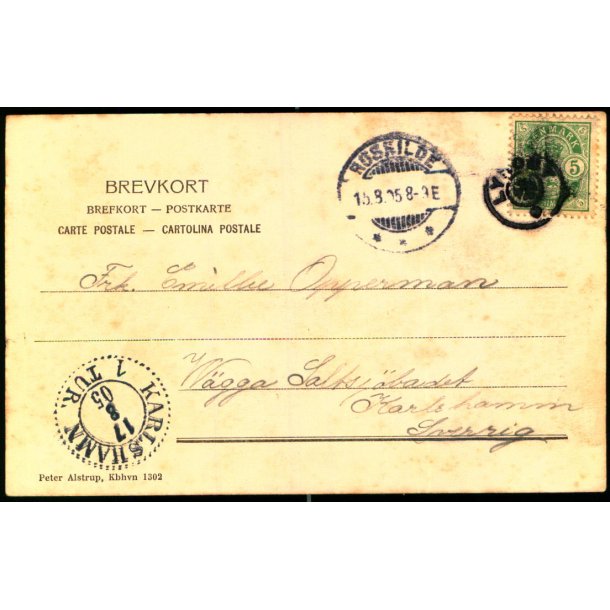 DENMARK
5
ROSKILDE
15.8.05 8-9E
BREVKORT
BREFKORT — POSTKARTE
CARTE POSTALE — CARTOLINA POSTALE
Frk. Emilie Opperman
Vägga Saltsjöbadet
Karlshamn
Sverrig
KARLSHAMN
1 TUR.
17
8
05
Peter Alstrup, Kbhvn 1302